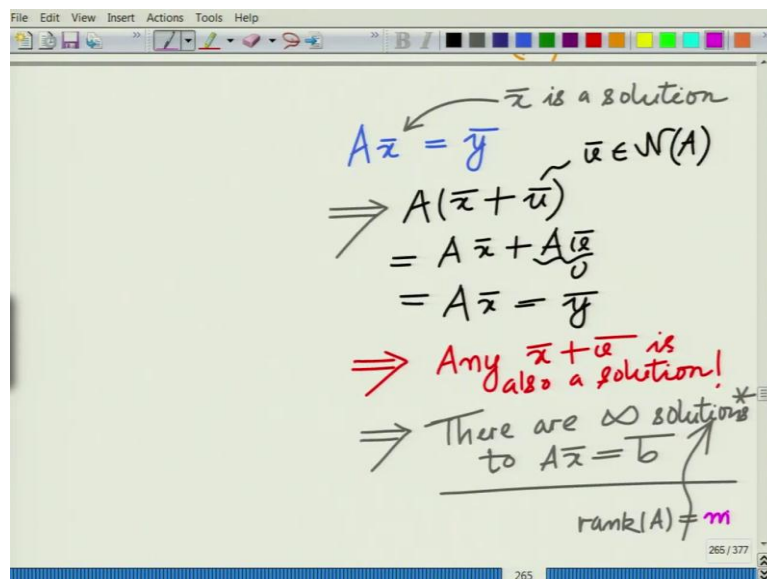 File Edit View Insert Actions Tools Help
B I
x̄ is a solution
Ax̄ = ȳ
ū ∈ N(A)
⇒ A(x̄ + ū)
= Ax̄ + Aū
0
= Ax̄ = ȳ
⇒ Any x̄ + ū is
also a solution!
⇒ There are ∞ solutions*
to Ax̄ = b̄
rank(A) = m
265 / 377
265